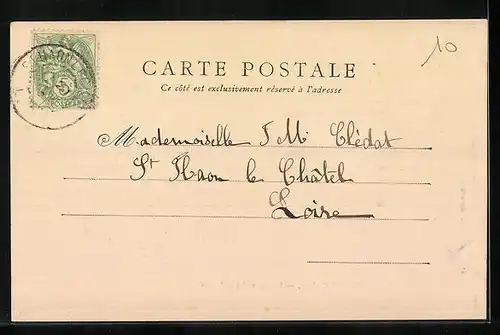 10
CARTE POSTALE
Ce côté est exclusivement réservé à l'adresse
Mademoiselle J M. Clédat
St Haon le Châtel
Loire